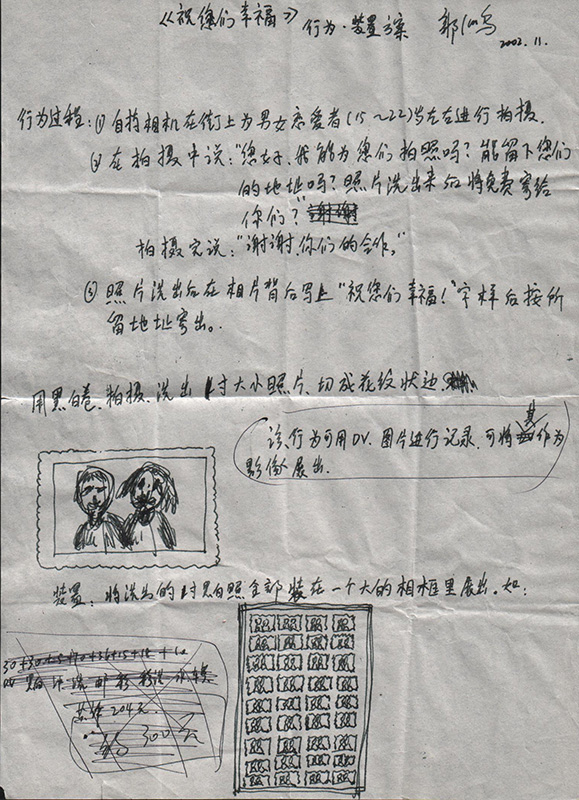 《祝您们幸福》行为·装置方案 郭 鸟 2002.11.
行为过程:①自持相机在街上为男女恋爱者(15~22)岁左右进行拍摄.
②在拍摄中说:"您好,我能为您们拍照吗?能留下您们
的地址吗?照片洗出来后将免费寄给
你们?"谢谢
拍摄完说:"谢谢,你们的合作。"
③照片洗出后在相片背后写上"祝您们幸福!"字样后按所
留地址寄出。
用黑白卷.拍摄.洗出1寸大小照片.切成花纹状边.
该行为可用DV.图片进行记录.可将其作为
影像展出.
装置:将洗出的1寸黑白照全部装在一个大的相框里展出.如:
204元
300元